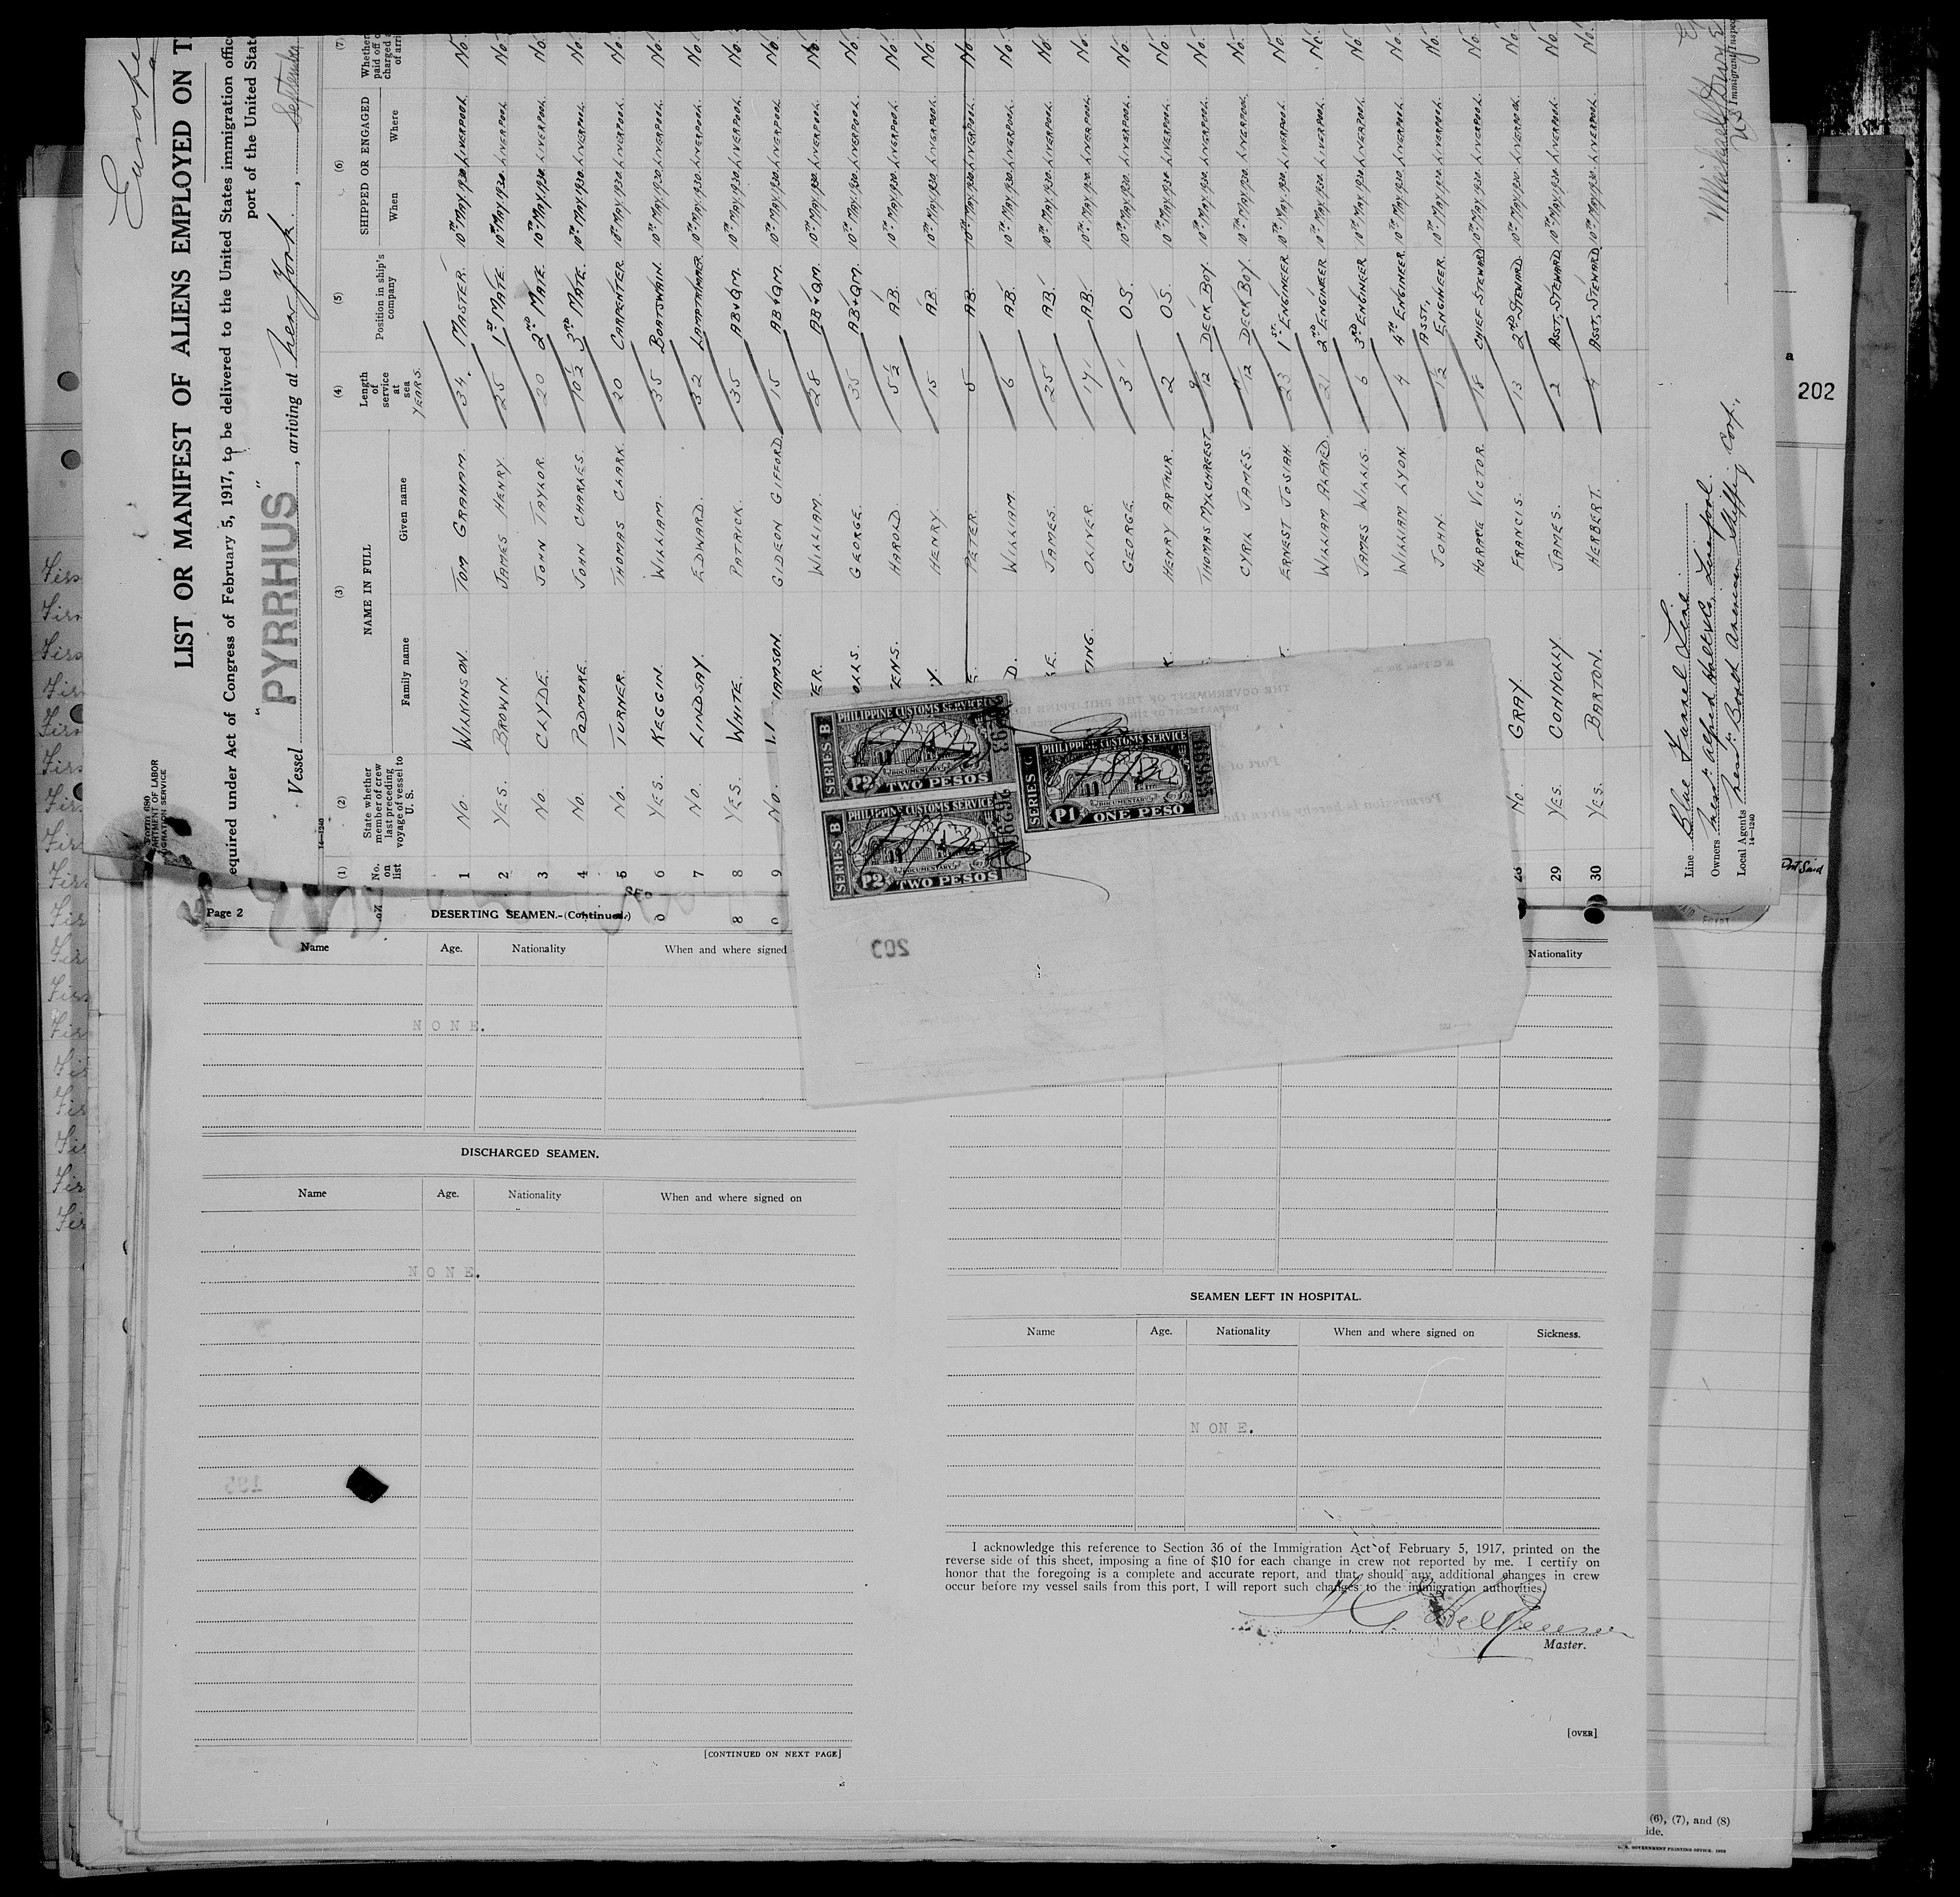 LIST OR MANIFEST OF ALIENS EMPLOYED ON T
equired under Act of Congress of February 5, 1917, to be delivered to the United States immigration offic
port of the United Stat
Vessel "PYRRHUS", arriving at New York, September
(1) (2) (3) (4) (5) (6) (7)
No. on list
State whether member of crew last preceding voyage of vessel to U. S.
NAME IN FULL
Family name Given name
Length of service at sea YEARS.
Position in ship's company
SHIPPED OR ENGAGED
When Where
1 No. WILKINSON. TOM GRAHAM. 34. MASTER. 10TH MAY 1930 LIVERPOOL. No.
2 YES. BROWN. JAMES HENRY. 25 1ST MATE 10TH MAY 1930 LIVERPOOL No.
3 No. CLYDE. JOHN TAYLOR. 20 2ND MATE. 10TH MAY 1930. LIVERPOOL. No.
4 No. PODMORE JOHN CHARLES. 10½ 3RD MATE. 10TH MAY 1930. LIVERPOOL. No.
5 No. TURNER. THOMAS CLARK. 20 CARPENTER 10TH MAY 1930. LIVERPOOL. No.
6 YES. KEGGIN. WILLIAM. 35 BOATSWAIN. 10TH MAY 1930. LIVERPOOL. No.
7 No. LINDSAY. EDWARD. 32 LAMPTRIMMER 10TH MAY 1930. LIVERPOOL. No.
8 YES. WHITE. PATRICK. 35 AB+QM. 10TH MAY 1930. LIVERPOOL. No.
9 No. IAMSON. GIDEON GIFFORD. 15 AB+QM. 10TH MAY 1930. LIVERPOOL. No.
ER. WILLIAM. 28 AB+QM. 10TH MAY 1930. LIVERPOOL. No.
OLLS. GEORGE. 35 AB+QM. 10TH MAY 1930. LIVERPOOL. No.
ENS. HAROLD. 5½ AB. 10TH MAY 1930. LIVERPOOL. No.
Y HENRY. 15 AB. 10TH MAY 1930. LIVERPOOL. No.
PETER. 5 AB. 10TH MAY 1930. LIVERPOOL. No.
D. WILLIAM. 6 AB. 10TH MAY 1930. LIVERPOOL. No.
LE. JAMES. 25 AB. 10TH MAY 1930. LIVERPOOL. No.
TING. OLIVER. AB. 10TH MAY 1930. LIVERPOOL. No.
GEORGE. 3 O.S. 10TH MAY 1930. LIVERPOOL. No.
K. HENRY ARTHUR. 2 O.S. 10TH MAY 1930. LIVERPOOL. No.
THOMAS MYLCHREEST. DECK BOY. 10TH MAY 1930. LIVERPOOL. No.
CYRIL JAMES. DECK BOY. 10TH MAY 1930. LIVERPOOL. No.
ERNEST JOSIAH. 23 1ST ENGINEER 10TH MAY 1930. LIVERPOOL. No.
WILLIAM ALFRED. 21 2ND ENGINEER 10TH MAY 1930. LIVERPOOL. No.
JAMES WILLIS. 6 3RD ENGINEER 10TH MAY 1930. LIVERPOOL. No.
WILLIAM LYON. 4 4TH ENGINEER. 10TH MAY 1930. LIVERPOOL. No.
JOHN. 1½ ASST. ENGINEER. 10TH MAY 1930. LIVERPOOL. No.
HORACE VICTOR. 18 CHIEF STEWARD 10TH MAY 1930. LIVERPOOL. No.
No. GRAY. FRANCIS. 13 2ND STEWARD. 10TH MAY 1930. LIVERPOOL. No.
29 YES. CONNOLLY JAMES. 2 ASST. STEWARD 10TH MAY 1930. LIVERPOOL. No.
30 YES. BARTON. HERBERT. 4 ASST. STEWARD. 10TH MAY 1930. LIVERPOOL. No.
Line Blue Funnel Line
Owners Messrs Alfred Holt & Co. Liverpool.
Local Agents Messrs Booth American Shipping Corp.,
14-1240
202
Port Said
PHILIPPINE CUSTOMS SERVICE
SERIES B
DOCUMENTARY
P2 TWO PESOS
PHILIPPINE CUSTOMS SERVICE
SERIES B
DOCUMENTARY
P2 TWO PESOS
PHILIPPINE CUSTOMS SERVICE
SERIES C
DOCUMENTARY
P1 ONE PESO
203
Page 2
DESERTING SEAMEN.-(Continued.)
Name Age. Nationality When and where signed
Nationality
NONE.
DISCHARGED SEAMEN.
Name Age. Nationality When and where signed on
NONE.
[CONTINUED ON NEXT PAGE]
SEAMEN LEFT IN HOSPITAL.
Name Age. Nationality When and where signed on Sickness.
NONE.
I acknowledge this reference to Section 36 of the Immigration Act of February 5, 1917, printed on the
reverse side of this sheet, imposing a fine of $10 for each change in crew not reported by me. I certify on
honor that the foregoing is a complete and accurate report, and that should any additional changes in crew
occur before my vessel sails from this port, I will report such changes to the immigration authorities.
Master.
[OVER]
(6), (7), and (8)
ide.